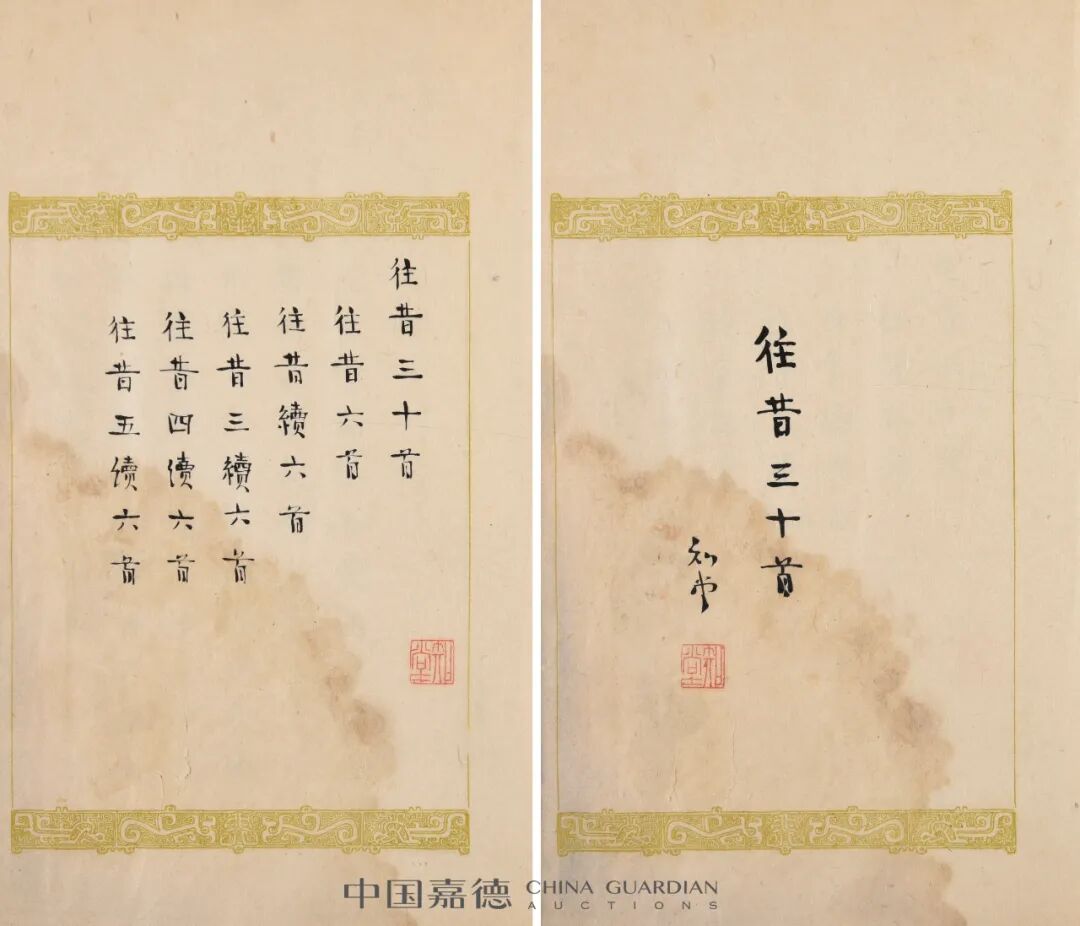 往昔三十首
往昔六首
往昔續六首
往昔三續六首
往昔四續六首
往昔五續六首
知堂
往昔三十首
知堂
知堂
中国嘉德 CHINA GUARDIAN
AUCTIONS